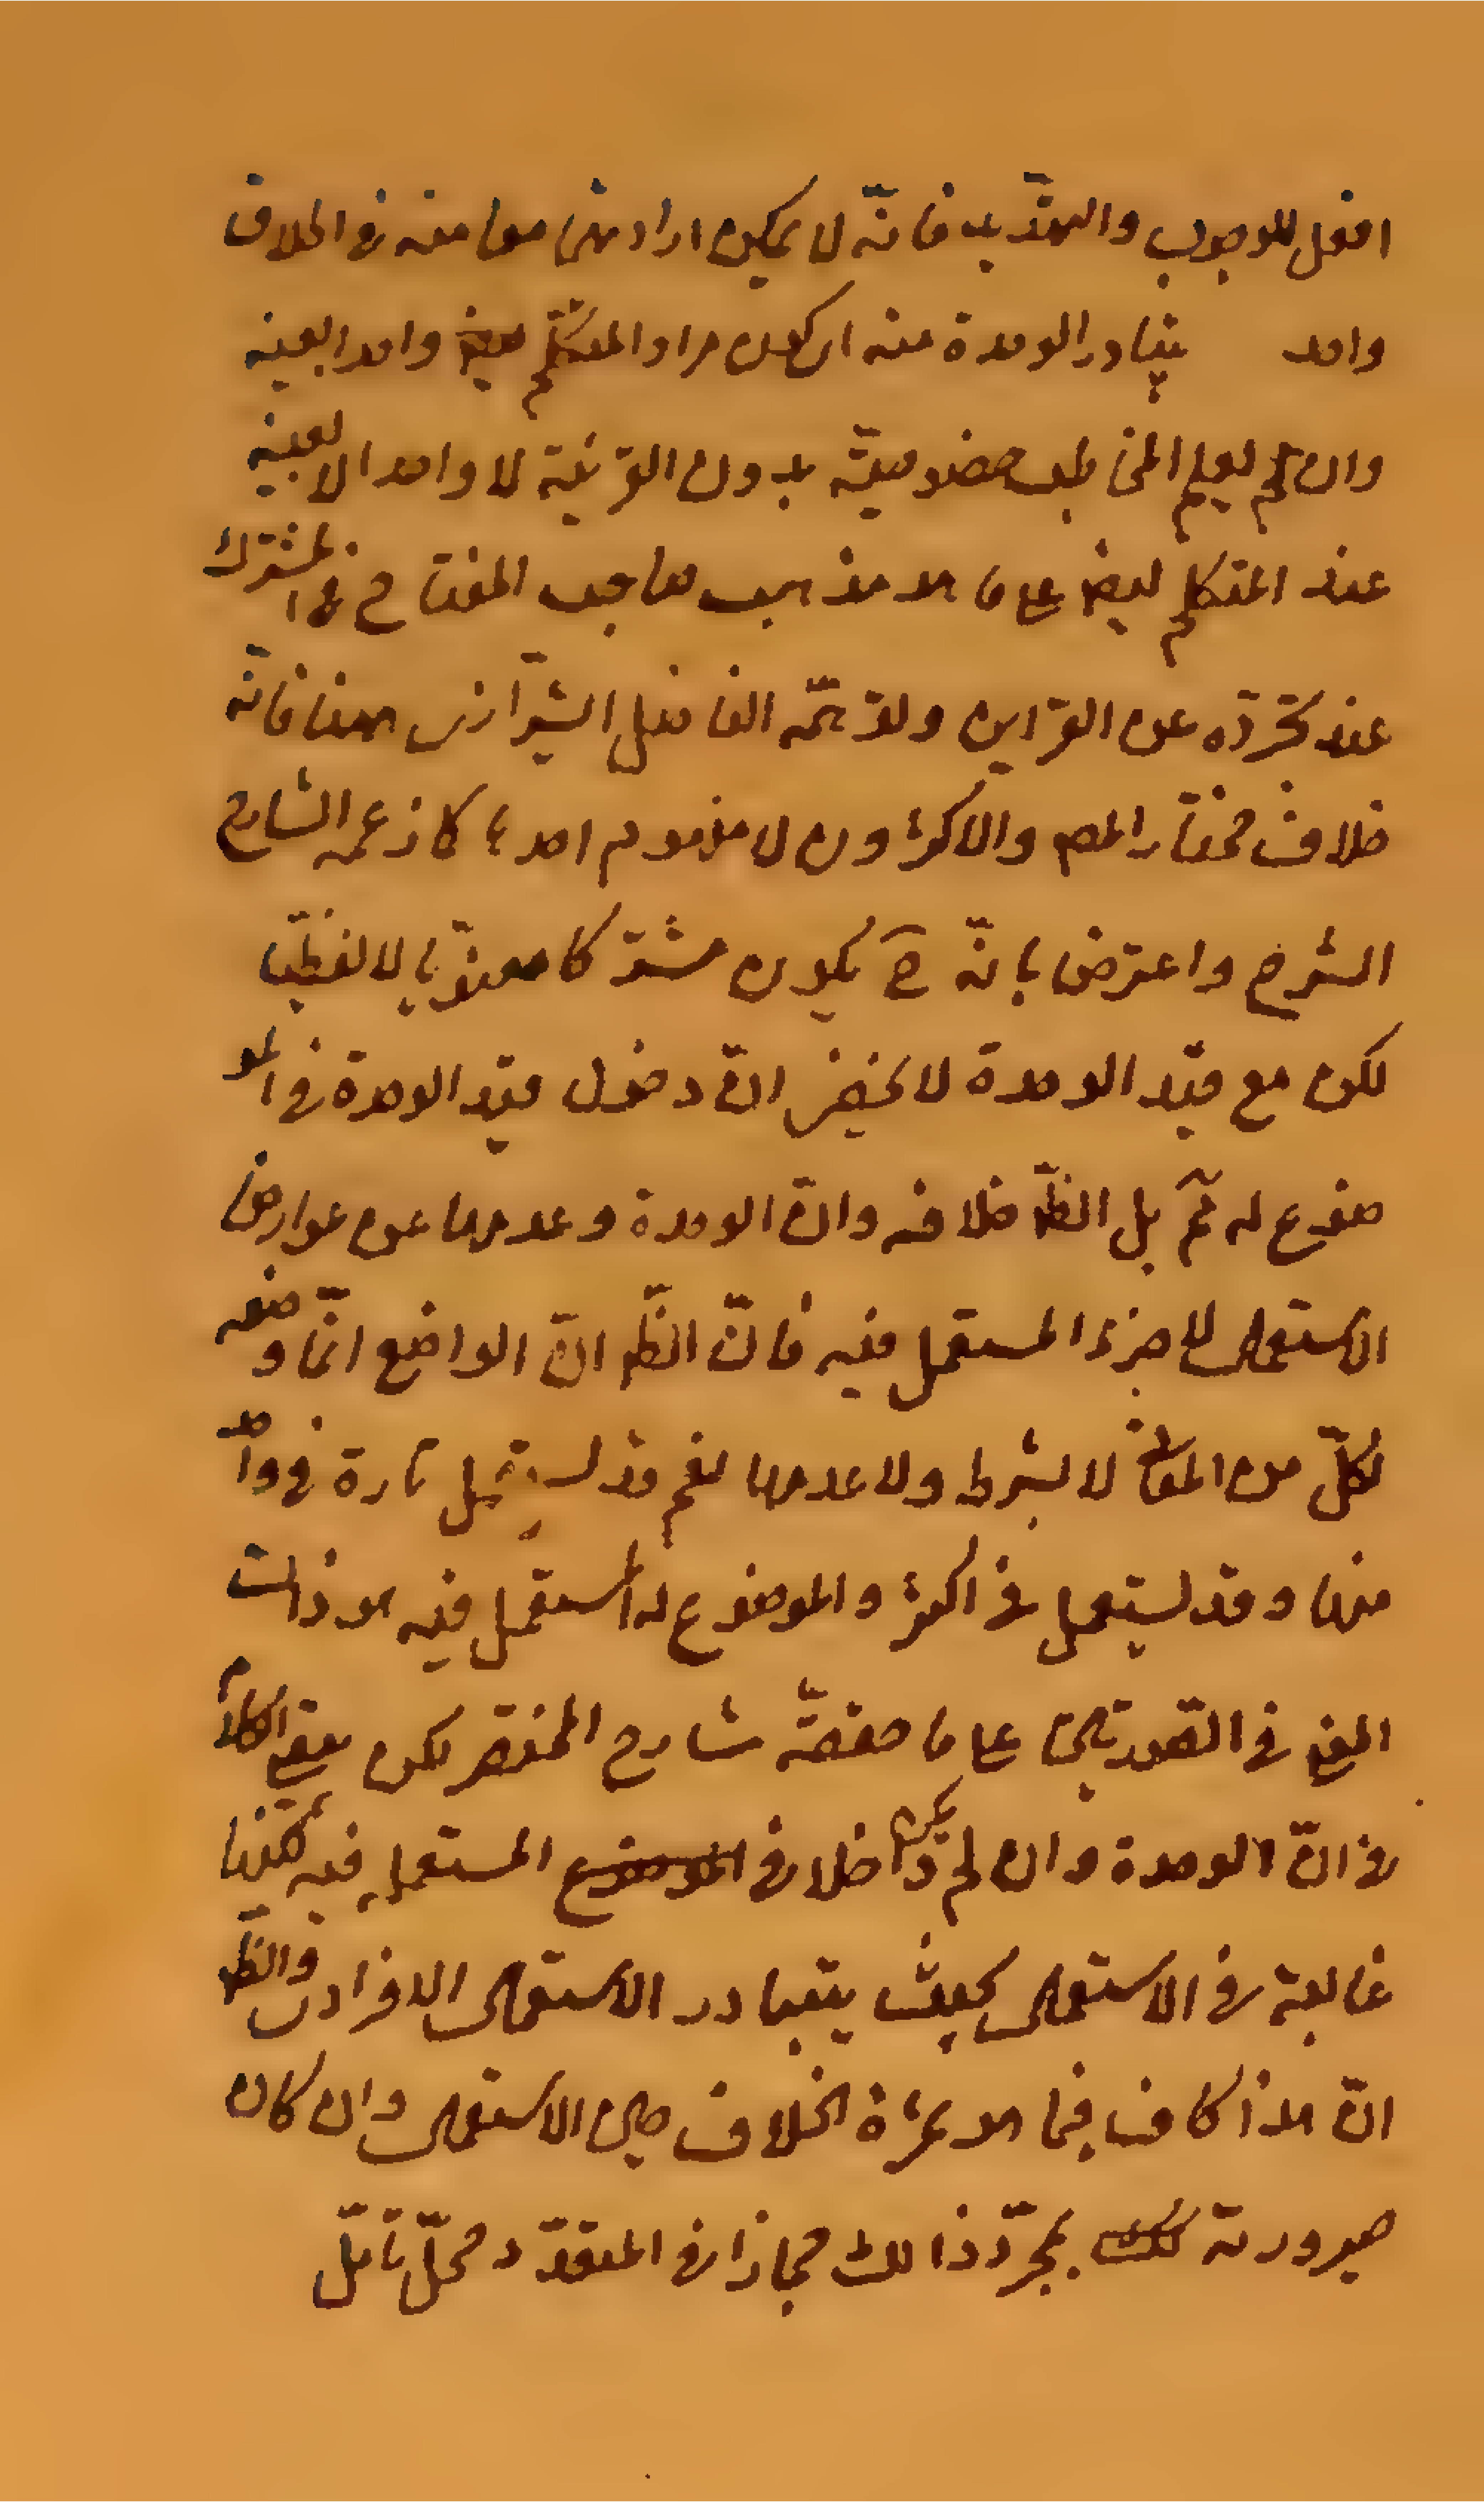 افعل للوجوب والتهدّيد فانّه لا يمكن ارادتهما معا منه في اطلاق
واحد يتبادر الوحدة منه ان يكون مراد المتكلّم معنى واحدا بعينه
وان لم يعلم المخاطب خصوصيّته بدون القرينة لا واحدا لا بعينه
عند المتكلم ايضا على ما هو مذهب صاحب المفتاح في المشترك
عند تجرّده عن القراين وتوهّمه الفاضل الشيرازى هنا فانّه
خلاف مختار المص والاكثرون لا مفهوم احدهما كما زعمه الشارح
الشرح واعترض بانّه ح يكون مشتركا معنويّا لا لفظيّا
لكن مع قيد الوحدة لا يخفى انّ دخول قيد الوحدة في المو
ضوع له ثم بل الظّ خلافه وانّ الوحدة وعدمها من عوارض
الاستعمال لا جزء المستعمل فيه فانّ الظّ انّ الواضع انّما وضعه
لكلّ من المعاني لا بشرط ولا عدمها نعم قد يستعمل تارة في واحد
منها وقد يستعمل في اكثر والموضوع له المستعمل فيه هو ذات
المعنى في الصورتين على ما حققه شارح المختصر لكن بقى الكلام
في انّ الوحدة وان لم يكن داخلا في المستعمل فيه لكنّها
غالبة في الاستعمال بحيث يتبادر الاستعمال الافرادى والظ
انّ هذا كاف فيما هو ثمرة الخلاف حين الاستعمال وان كان
صيرورته بمجرّد ذالك مجازا في المتعدّد محلّ تامّل